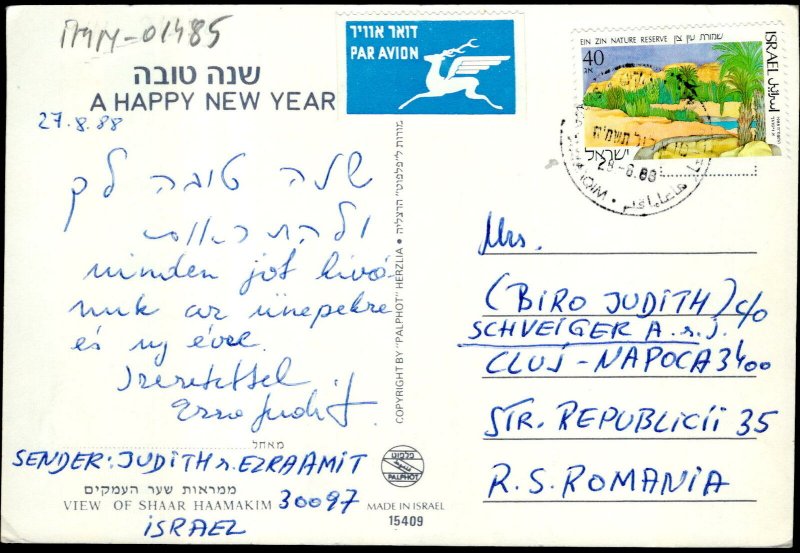 דואר אוויר
PAR AVION
שמורת עין צין
EIN ZIN NATURE RESERVE
40
ISRAEL
ישראל
שנה טובה
A HAPPY NEW YEAR
27.8.88
שנה טובה לך
minden jót kívá
nuk az ünnepekre
és uj évre.
Szeretettel
Judit
מאחל
SENDER: JUDITH EZRAAMIT
ממראות שער העמקים
VIEW OF SHAAR HAAMAKIM
30097
ISRAEL
COPYRIGHT BY "PALPHOT" HERZLIA •
פלפוט
PALPHOT
MADE IN ISRAEL
15409
Mrs.
(BIRO JUDITH) c/o
SCHVEIGER A.
CLUJ - NAPOCA 3400
STR. REPUBLICII 35
R. S. ROMANIA